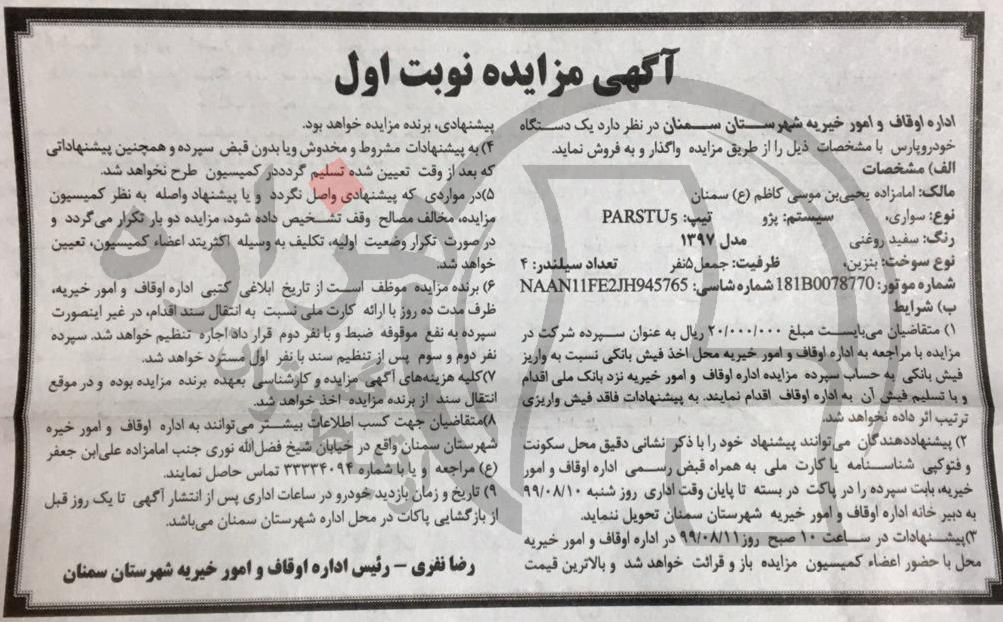 آگهی مزایده نوبت اول
اداره اوقاف و امور خیریه شهرستان سمنان در نظر دارد یک دستگاه
خودروپارس با مشخصات ذیل را از طریق مزایده واگذار و به فروش نماید.
الف) مشخصات
مالک: امامزاده یحیی‌بن موسی کاظم (ع) سمنان
نوع: سواری، سیستم: پژو تیپ: PARSTU5
رنگ: سفید روغنی مدل ۱۳۹۷
نوع سوخت: بنزین، ظرفیت: جمعا۵نفر تعداد سیلندر: ۴
شماره موتور: 181B0078770 شماره شاسی: NAAN11FE2JH945765
ب) شرایط
۱) متقاضیان می‌بایست مبلغ ۲۰/۰۰۰/۰۰۰ ریال به عنوان سپرده شرکت در
مزایده با مراجعه به اداره اوقاف و امور خیریه محل اخذ فیش بانکی نسبت به واریز
فیش بانکی به حساب سپرده مزایده اداره اوقاف و امور خیریه نزد بانک ملی اقدام
و با تسلیم فیش آن به اداره اوقاف اقدام نمایند. به پیشنهادات فاقد فیش واریزی
ترتیب اثر داده نخواهد شد.
۲) پیشنهاددهندگان می‌توانند پیشنهاد خود را با ذکر نشانی دقیق محل سکونت
و فتوکپی شناسنامه یا کارت ملی به همراه قبض رسمی اداره اوقاف و امور
خیریه، بابت سپرده را در پاکت در بسته تا پایان وقت اداری روز شنبه ۹۹/۰۸/۱۰
به دبیر خانه اداره اوقاف و امور خیریه شهرستان سمنان تحویل نماید.
۳)پیشنهادات در ساعت ۱۰ صبح روز۹۹/۰۸/۱۱ در اداره اوقاف و امور خیریه
محل با حضور اعضاء کمیسیون مزایده باز و قرائت خواهد شد و بالاترین قیمت
پیشنهادی، برنده مزایده خواهد بود.
۴) به پیشنهادات مشروط و مخدوش ویا بدون قبض سپرده و همچنین پیشنهاداتی
که بعد از وقت تعیین شده تسلیم گردددر کمیسیون طرح نخواهد شد.
۵)در مواردی که پیشنهادی واصل نگردد و یا پیشنهاد واصله به نظر کمیسیون
مزایده، مخالف مصالح وقف تشخیص داده شود، مزایده دو بار تکرار می‌گردد و
در صورت تکرار وضعیت اولیه، تکلیف به وسیله اکثریتد اعضاء کمیسیون، تعیین
خواهد شد.
۶) برنده مزایده موظف است از تاریخ ابلاغی کتبی اداره اوقاف و امور خیریه،
ظرف مدت ده روز با ارائه کارت ملی نسبت به انتقال سند اقدام، در غیر اینصورت
سپرده به نفع موقوفه ضبط و با نفر دوم قرار داد اجاره تنظیم خواهد شد. سپرده
نفر دوم و سوم پس از تنظیم سند با نفر اول مسترد خواهد شد.
۷)کلیه هزینه‌های آگهی مزایده و کارشناسی بعهده برنده مزایده بوده و در موقع
انتقال سند از برنده مزایده اخذ خواهد شد.
۸)متقاضیان جهت کسب اطلاعات بیشتر می‌توانند به اداره اوقاف و امور خیره
شهرستان سمنان واقع در خیابان شیخ فضل‌الله نوری جنب امامزاده علی‌ابن جعفر
(ع) مراجعه و یا با شماره ۳۳۳۳۴۰۹۴ تماس حاصل نمایند.
۹) تاریخ و زمان بازدید خودرو در ساعات اداری پس از انتشار آگهی تا یک روز قبل
از بازگشایی پاکات در محل اداره شهرستان سمنان می‌باشد.
رضا نفری – رئیس اداره اوقاف و امور خیریه شهرستان سمنان